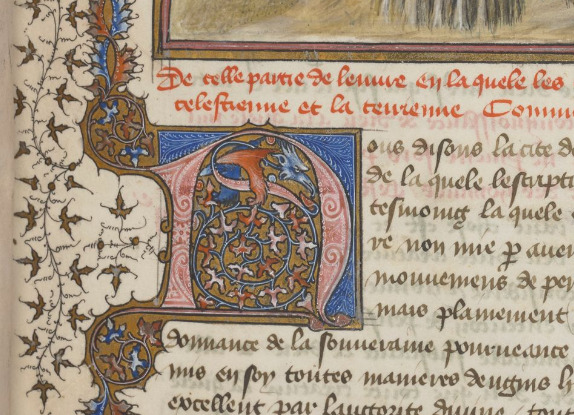 De celle partie de leuure en la quele les
celestienne et la terrienne Comm
Nous disons la cite de
de la quele lescript
tesmoing la quele
re non mie p auen
mouuemens de pen
mais plainement
donnance de la souueraine pourueance
mis en soy toutes manieres dengins h
excellent par lauctorite diuine tou